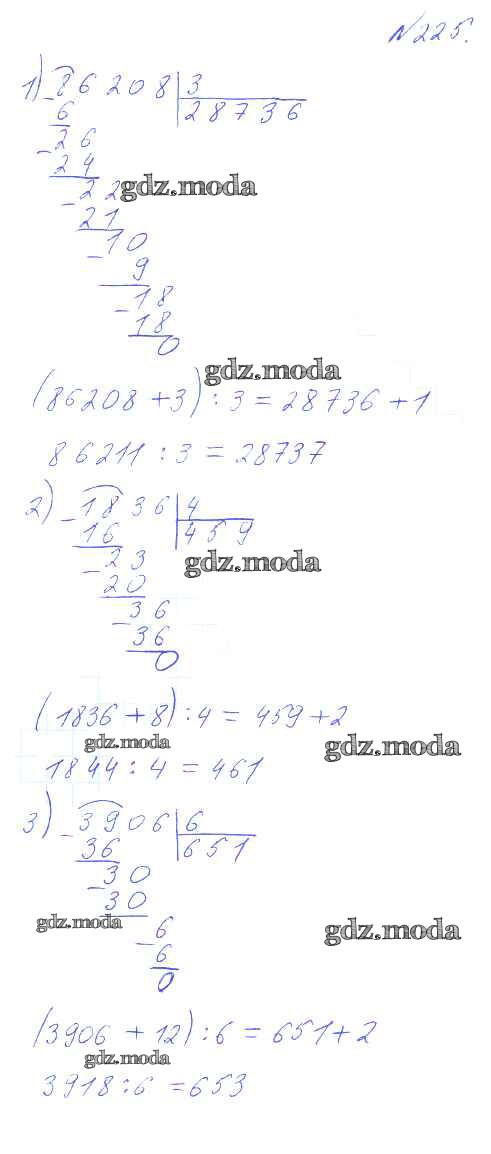 №225.
1) 86208 | 3
6 28736
26
24
22 gdz.moda
21
10
9
18
18
0
gdz.moda
(86208 + 3) : 3 = 28736 + 1
86211 : 3 = 28737
2) 1836 | 4
16 459
23 gdz.moda
20
36
36
0
(1836 + 8) : 4 = 459 + 2
gdz.moda gdz.moda
1844 : 4 = 461
3) 3906 | 6
36 651
30
30
gdz.moda 6 gdz.moda
6
0
(3906 + 12) : 6 = 651 + 2
gdz.moda
3918 : 6 = 653